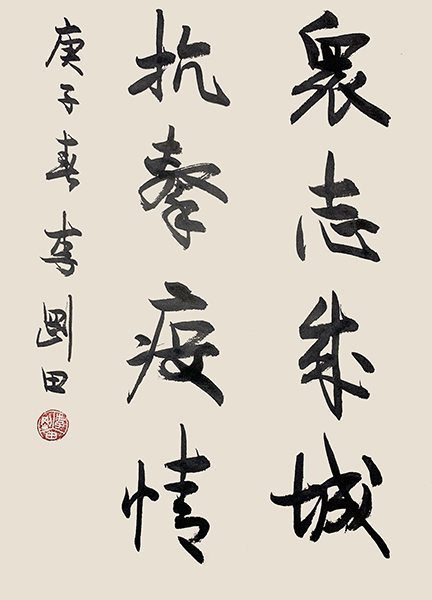 眾志成城
抗擊疫情
庚子春李剛田